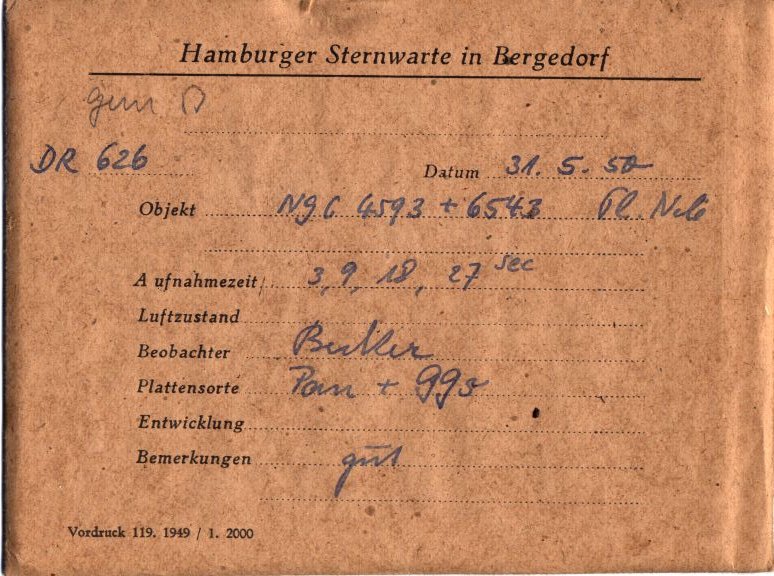 Hamburger Sternwarte in Bergedorf
DR 626
Datum 31. 5. 50
Objekt NGC 4593 + 6543 Pl. Neb
Aufnahmezeit 3, 9, 18, 27 sec
Luftzustand
Beobachter
Plattensorte Pan +
Entwicklung
Bemerkungen gut
Vordruck 119. 1949 / 1. 2000